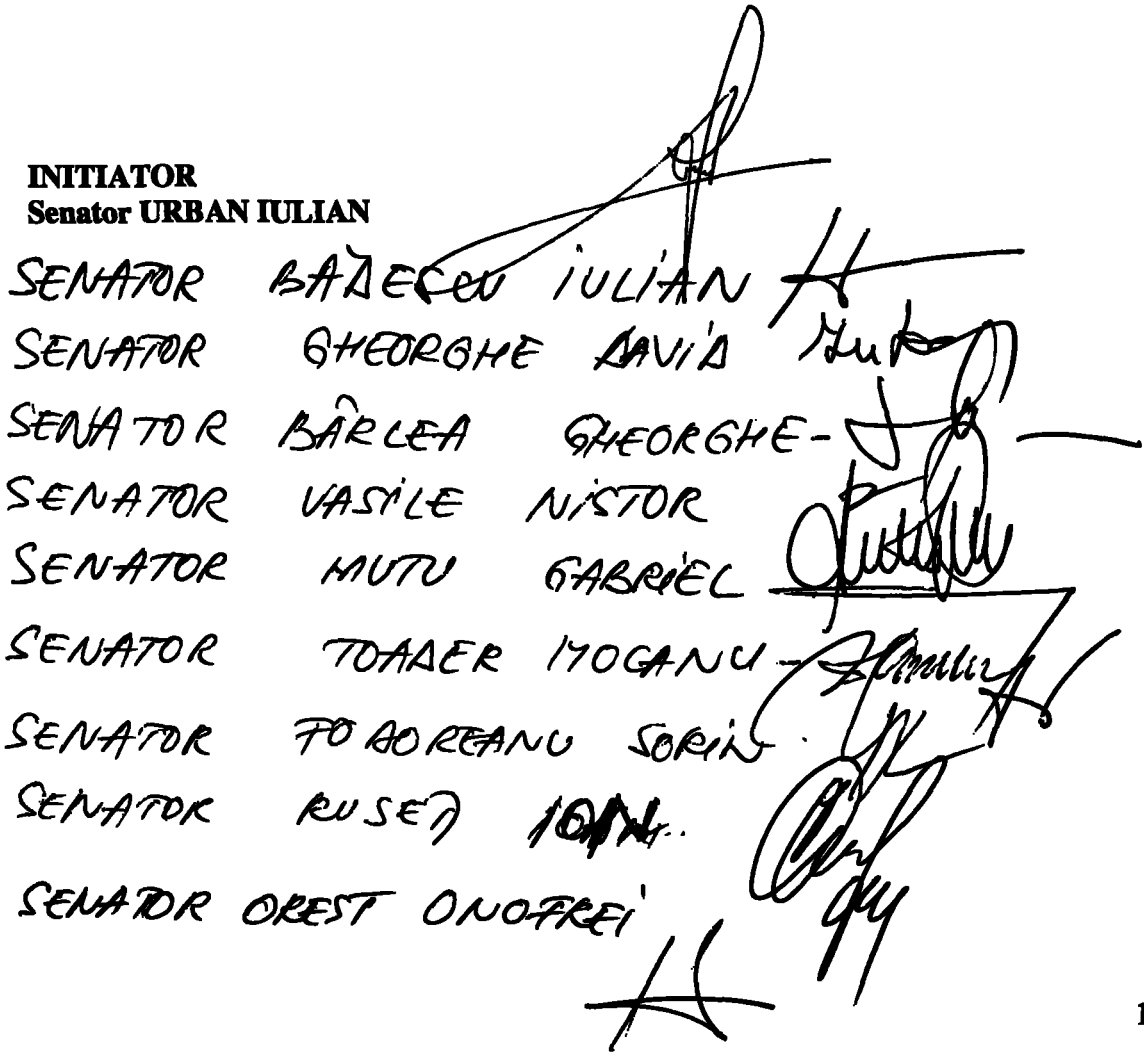 INITIATOR
Senator URBAN IULIAN
SENATOR BĂDESCU IULIAN
SENATOR GHEORGHE DAVID
SENATOR BÂRLEA GHEORGHE-
SENATOR VASILE NISTOR
SENATOR MUTU GABRIEL
SENATOR TOADER MOCANU -
SENATOR TODOREANU SORIN
SENATOR RUSEȚ ION
SENATOR OREST ONOFREI
1